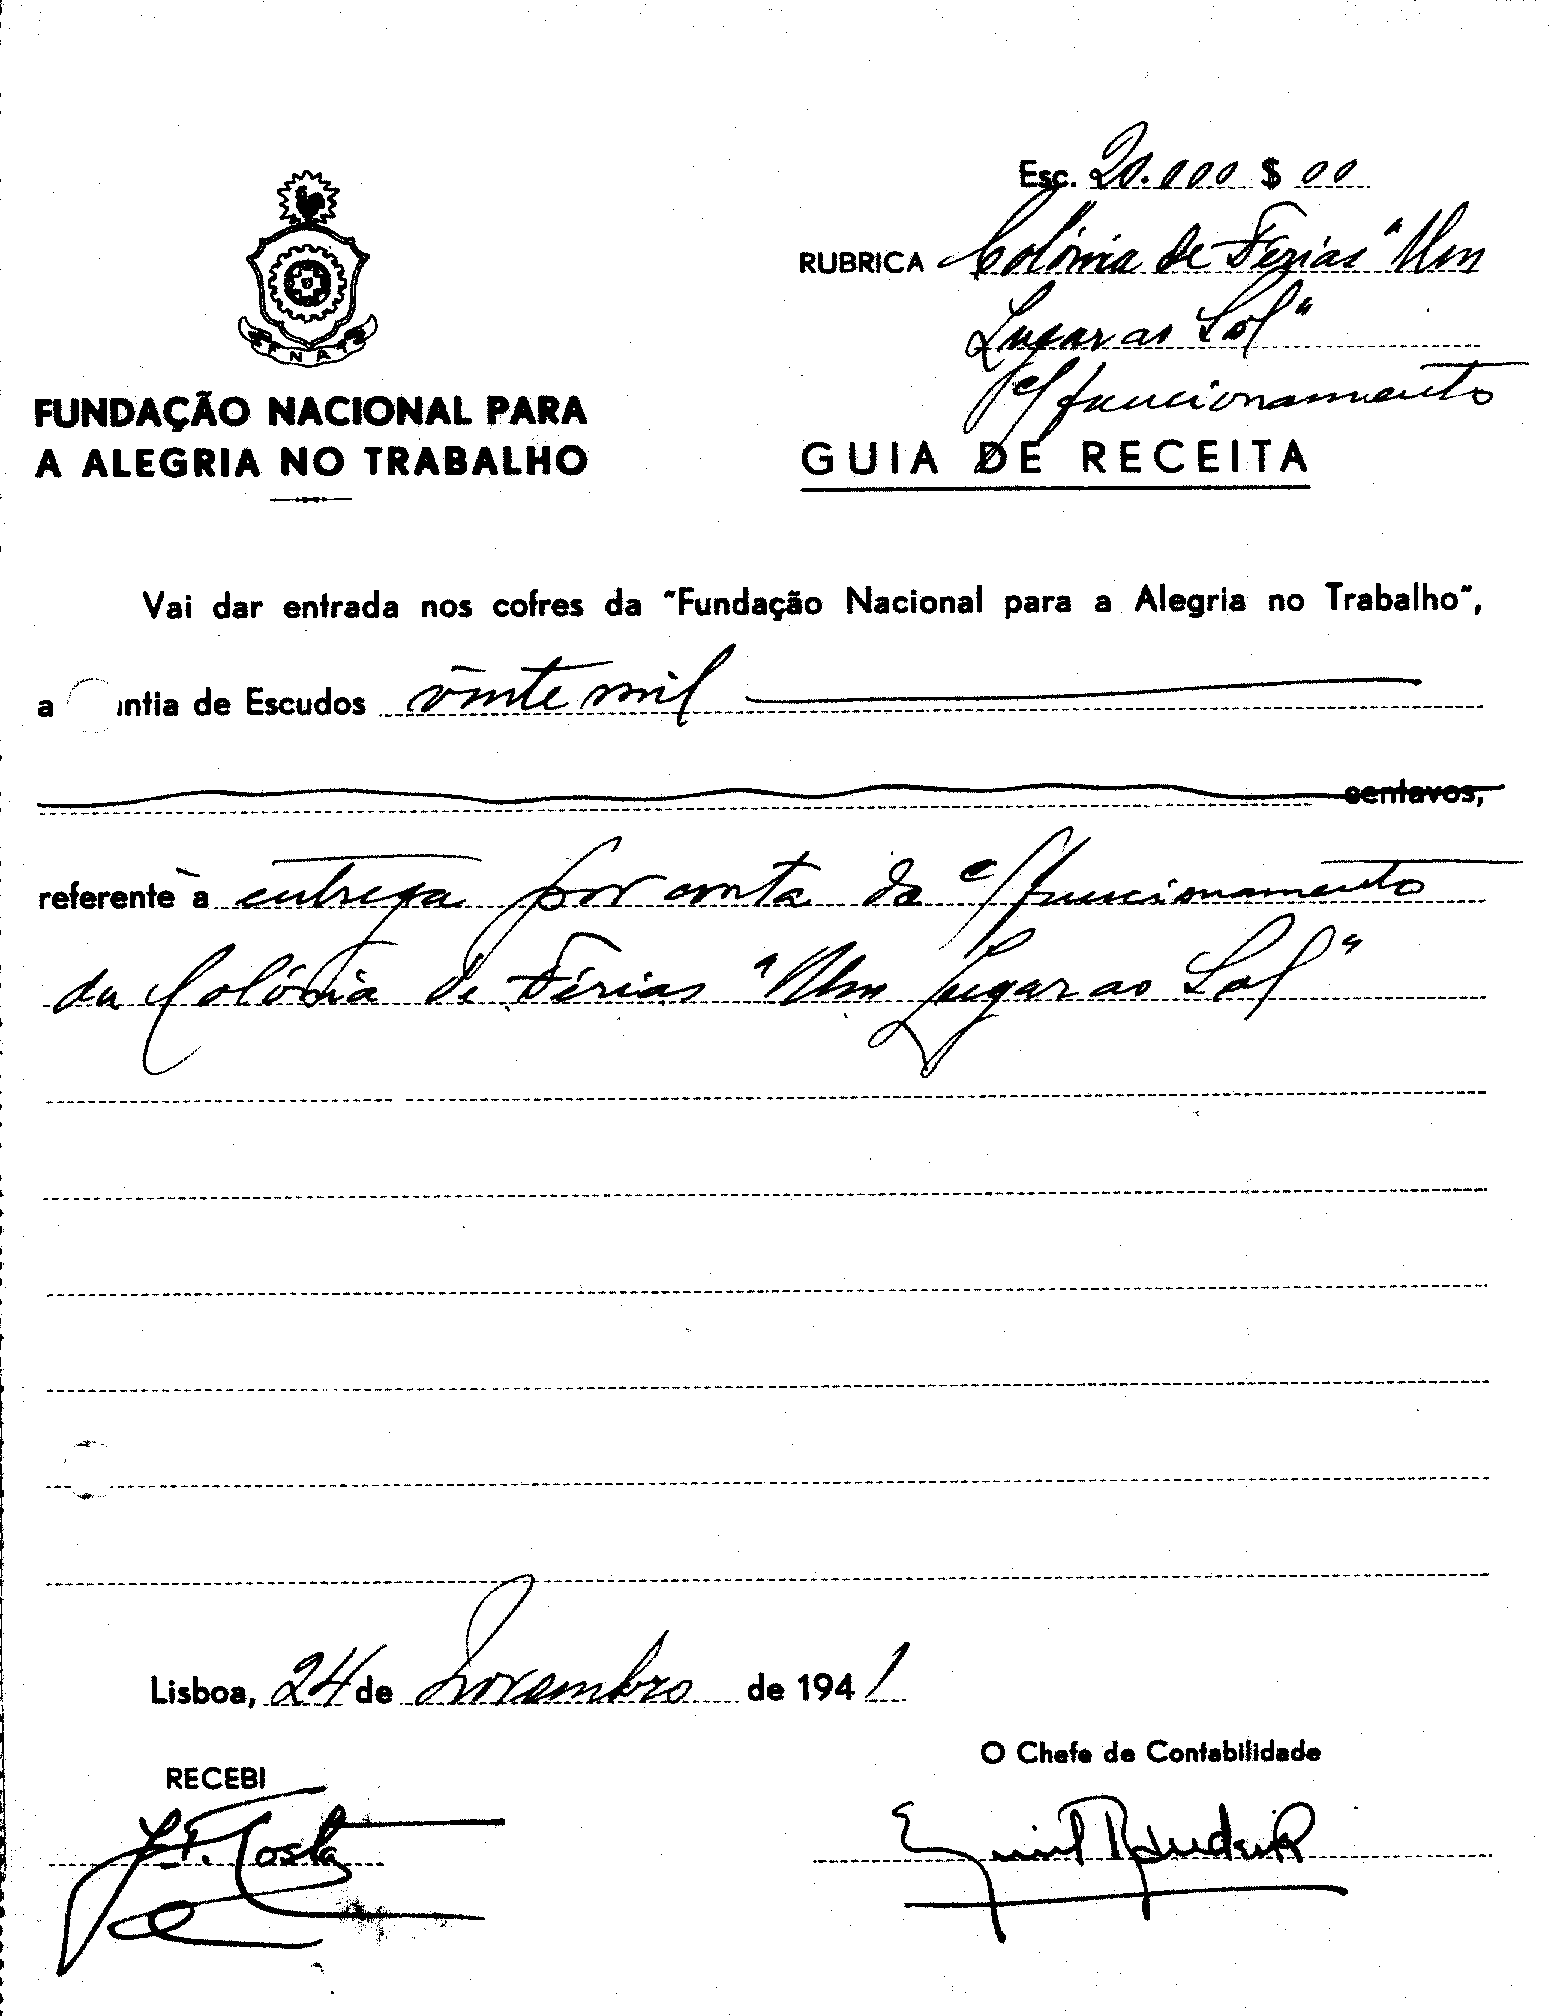 Esc. 20.000 $ 00
RUBRICA Colónia de Férias "Um
Lugar ao Sol"
c/ funcionamento
FNAT
FUNDAÇÃO NACIONAL PARA
A ALEGRIA NO TRABALHO
GUIA DE RECEITA
Vai dar entrada nos cofres da "Fundação Nacional para a Alegria no Trabalho",
a ntia de Escudos vinte mil
centavos,
referente à entrega por conta da c/ funcionamento
da Colónia de Férias "Um Lugar ao Sol"
Lisboa, 24 de Novembro de 1941
O Chefe de Contabilidade
RECEBI
J. F. Costa